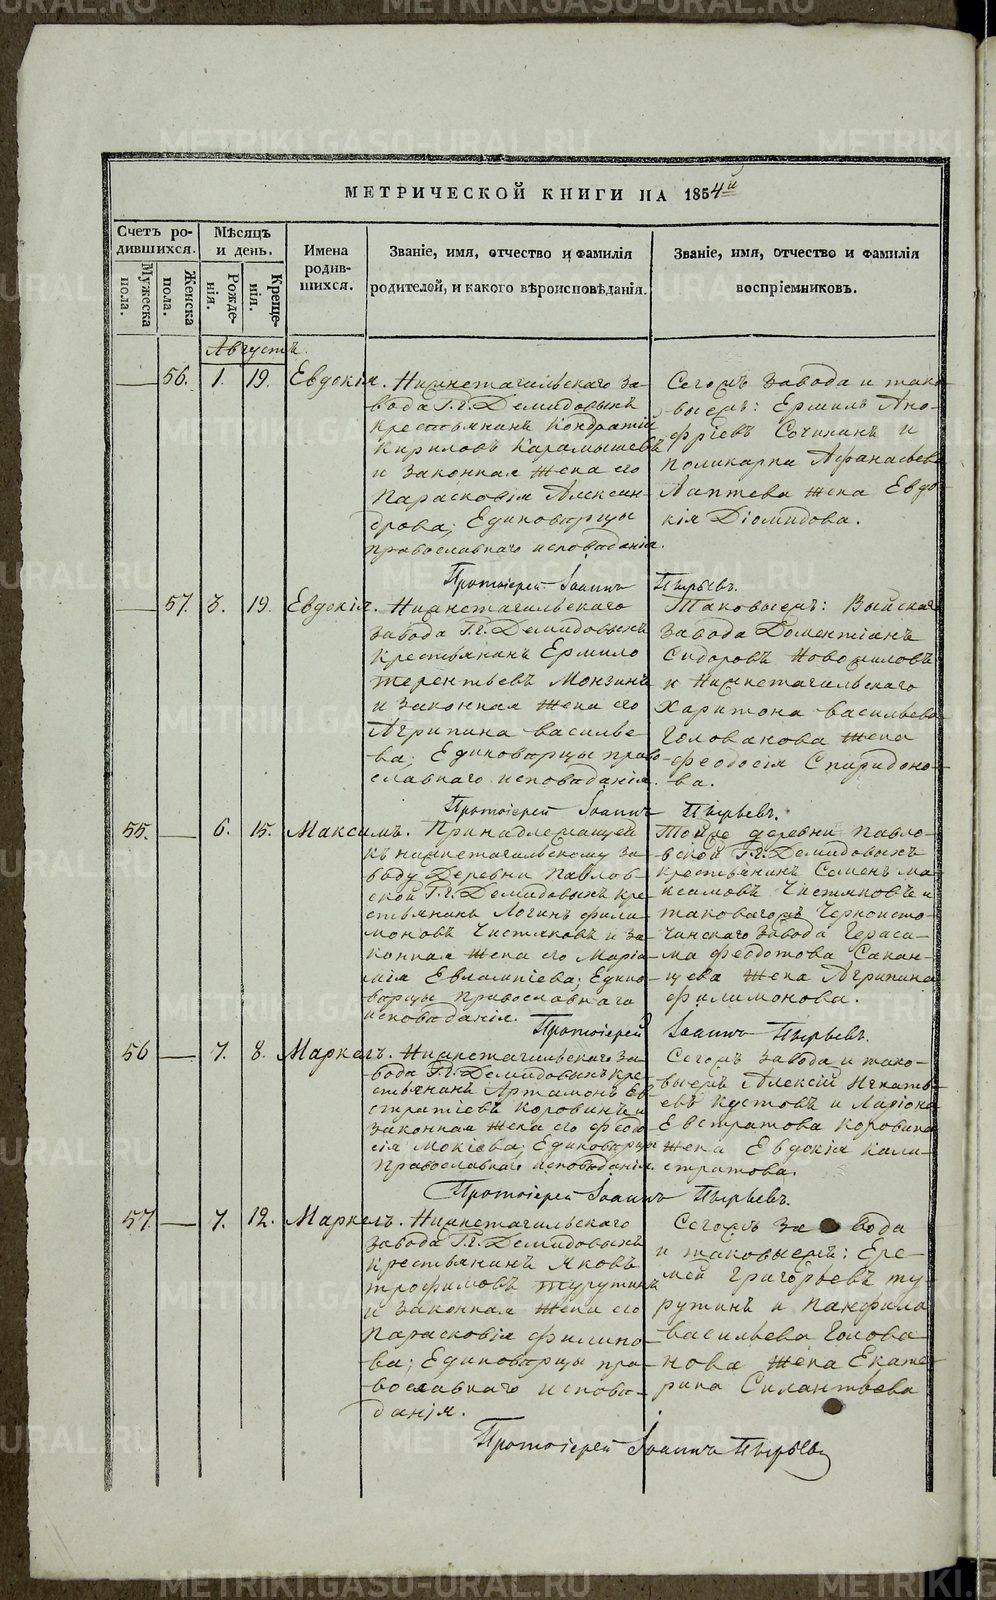 METRIKI.GASO-URAL.RU
МЕТРИЧЕСКОЙ КНИГИ НА 1854й
Счетъ ро-
дившихся.
Мужеска
пола.
Женска
пола.
Мѣсяцъ
и день.
Рожде-
нія.
Креще-
нія.
Имена
родив-
шихся.
Званіе, имя, отчество и фамилія
родителей, и какого вѣроисповѣданія.
Званіе, имя, отчество и фамилія
воспріемниковъ.
Августъ.
56. 1. 19. Евдокія.
Нижнетагильскаго за-
вода Г.г. Демидовыхъ
крестьянинъ Кондратій
Кириловъ Карамышевъ
и законная жена его
Парасковія Алексан-
дрова; Единоверцы
православнаго исповеданія.
Сегожъ завода и тако-
выежъ: Ермилъ Ано-
фріевъ Сочихинъ и
Поликарпа Афанасьева
Лаптева жена Евдо-
кія Діомидова.
Протоіерей Іоаннъ Пырьевъ.
57. 3. 19. Евдокія.
Нижнетагильскаго
завода Г.г. Демидовыхъ
крестьянинъ Ермило
Терентьевъ Монзинъ
и законная жена его
Агрипина Василье-
ва; Единоверцы право-
славнаго исповеданія.
Таковыежъ: Выйскаго
завода Дометіанъ
Сидоровъ Новошиловъ
и Нижнетагильскаго
Харитона Васильева
Голованова жена
Феодосія Спиридоно-
ва.
Протоіерей Іоаннъ Пырьевъ.
55. 6. 15. Максимъ.
Принадлежащей
къ нижнетагильскому за-
воду Деревни Павлов-
ской Г.г. Демидовыхъ кре-
стьянинъ Логинъ Фили-
моновъ Чистяковъ и за-
конная жена его Марія-
мія Евлампіева; Едино-
верцы православнаго
исповеданія.
Тойже деревни Павло-
вской Г.г. Демидовыхъ
крестьянинъ Семенъ Ма-
ксимовъ Чистяковъ и
таковагожъ Черноисто-
чинскаго завода Гераси-
ма Феодотова Сакан-
цева жена Агрипина
Филимонова.
Протоіерей Іоаннъ Пырьевъ.
56 7. 8. Маркелъ.
Нижнетагильскаго за-
вода Г.г. Демидовыхъ кре-
стьянинъ Артамонъ Ев-
стратіевъ Коровинъ и
законная жена его Феодо-
сія Мокіева; Единоверцы
Православнаго исповеданія.
Сегожъ завода и тако-
выежъ Алексій Игнать-
евъ Кустовъ и Ларіона
Евстратова Коровина
жена Евдокія Кали-
стратова.
Протоіерей Іоаннъ Пырьевъ.
57. 7. 12. Маркелъ.
Нижнетагильскаго
завода Г.г. Демидовыхъ
крестьянинъ Яковъ
Трофимовъ Турутинъ
и законная жена его
Парасковія Филипо-
ва; Единоверцы пра-
вославнаго испове-
данія.
Сегожъ завода
и таковыежъ: Ере-
мей Григорьевъ Ту-
рутинъ и Панфила
Васильева Голова-
нова жена Екате-
рина Силантьева
Протоіерей Іоаннъ Пырьевъ